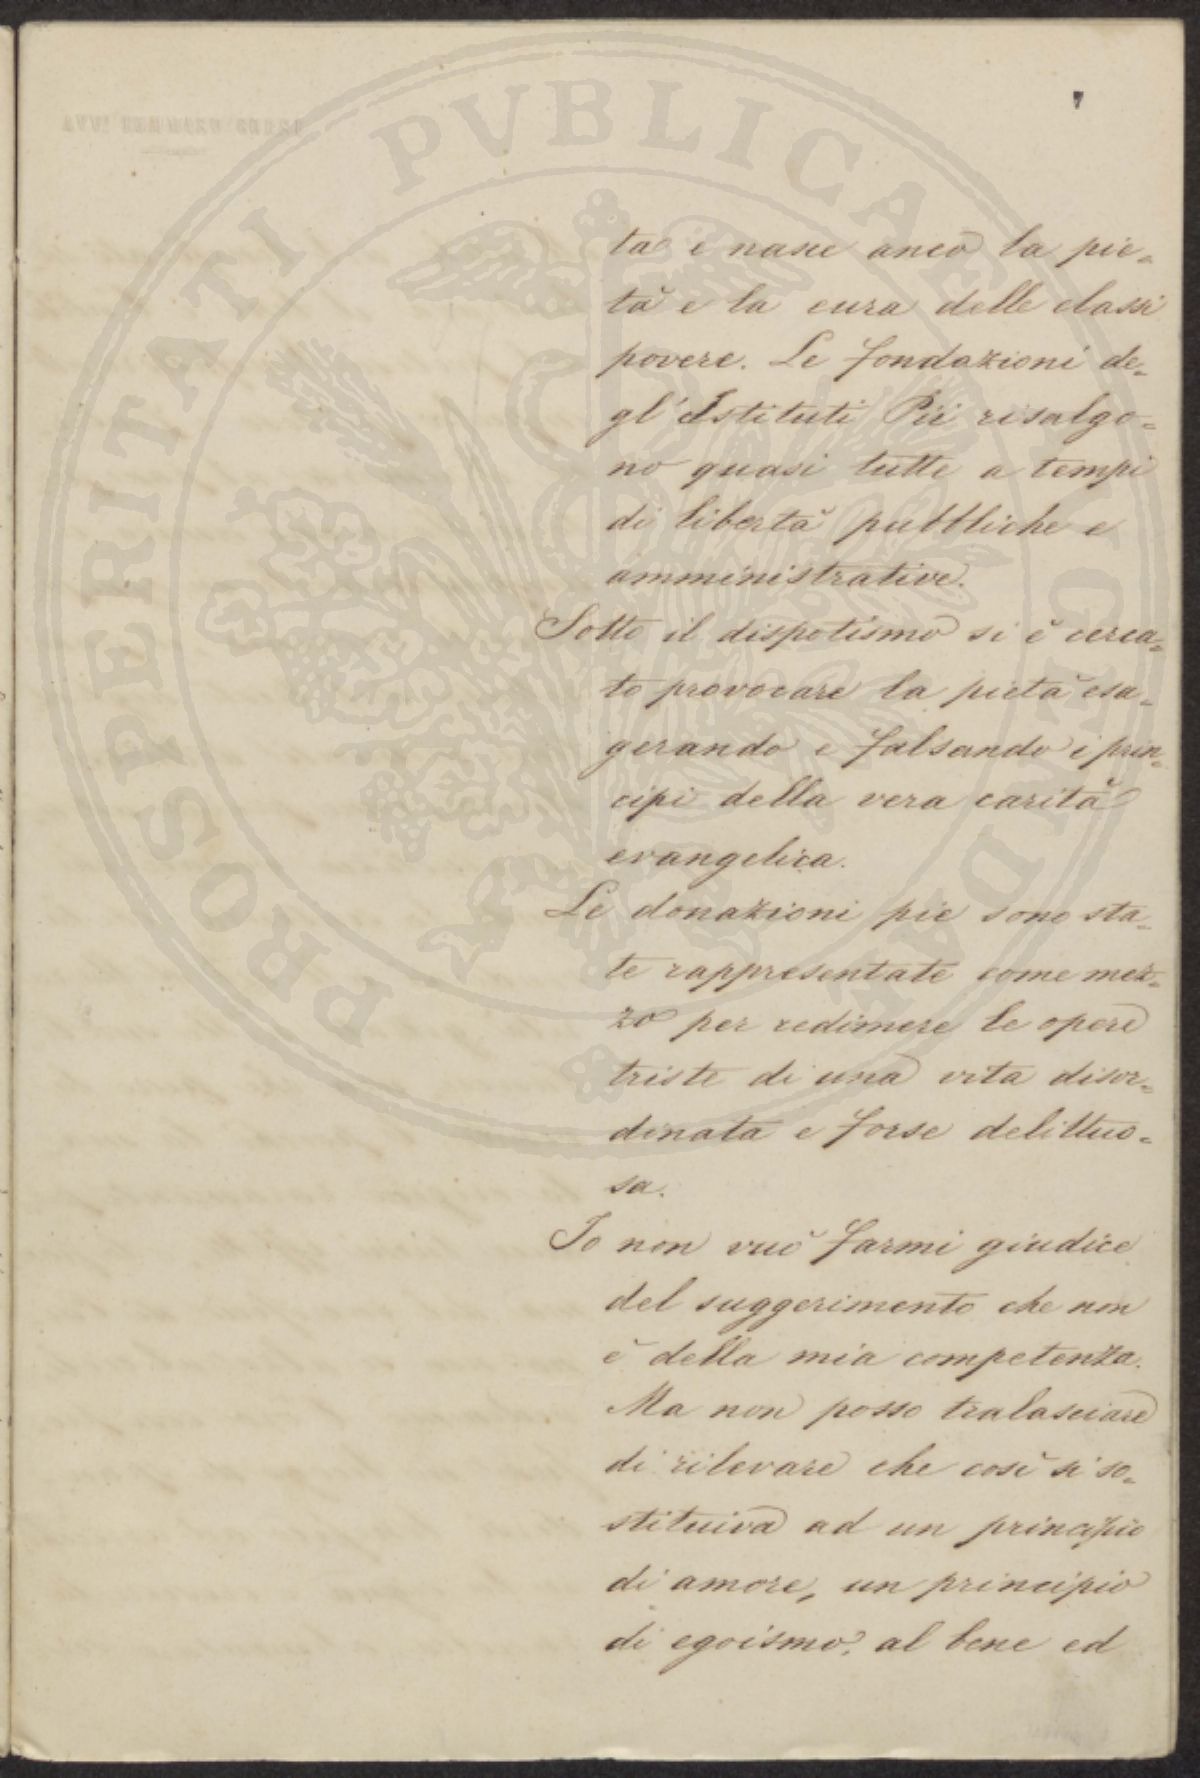 7
PROSPERITATI PVBLICAE AVGENDAE
tà e nasce anco la pie=
tà e la cura delle classi
povere. Le fondazioni de=
gl'Istituti Pii risalgo=
no quasi tutte a tempi
di libertà pubbliche e
amministrative.
Sotto il dispotismo si è cerca=
to provocare la pietà esa=
gerando e falsando i prin=
cipi della vera carità
evangelica.
Le donazioni pie sono sta=
te rappresentate come mez=
zo per redimere le opere
triste di una vita disor=
dinata e forse delittuo=
sa.
Io non vuò farmi giudice
del suggerimento che non
è della mia competenza.
Ma non posso tralasciare
di rilevare che così si so=
stituiva ad un principio
di amore, un principio
di egoismo; al bene ed